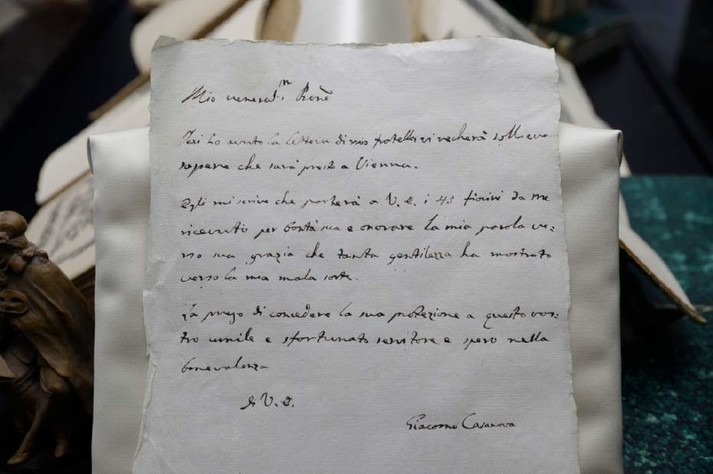 Mio venerat.mo Prone
Ieri ho avuto la lettera di mio fratello vi recherà sollievo
sapere che sarà presto a Vienna.
Egli mi scrive che porterà a V. E. i 45 fiorini da me
ricevuto per bontà sua e onorare la mia parola ve:
rso sua grazia che tanta gentilezza ha mostrato
verso la mia mala sorte.
La prego di concedere la sua protezione a questo vos:
tro umile e sfortunato servitore e spero nella
benevolenza
di V. E.
Giacomo Casanova